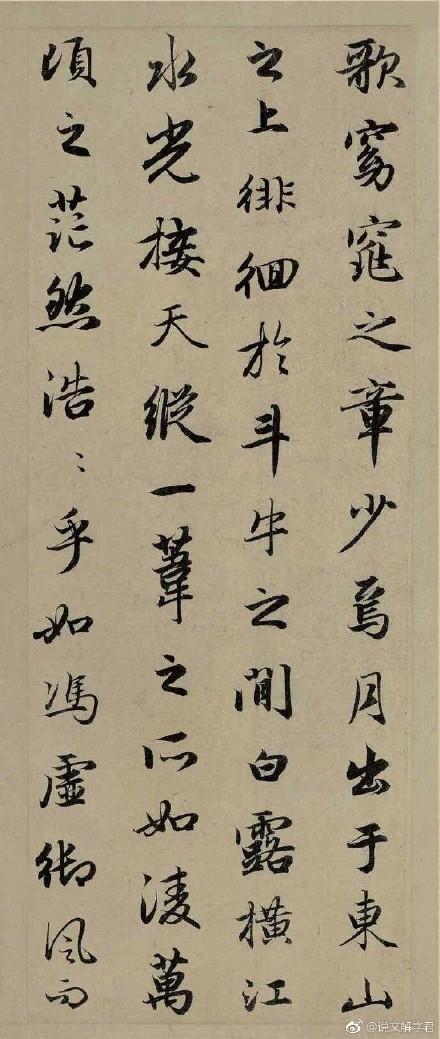 歌窈窕之章少焉月出于東山
之上徘徊於斗牛之間白露橫江
水光接天縱一葦之所如淩萬
頃之茫然浩〻乎如馮虛御風而
@说文解字君